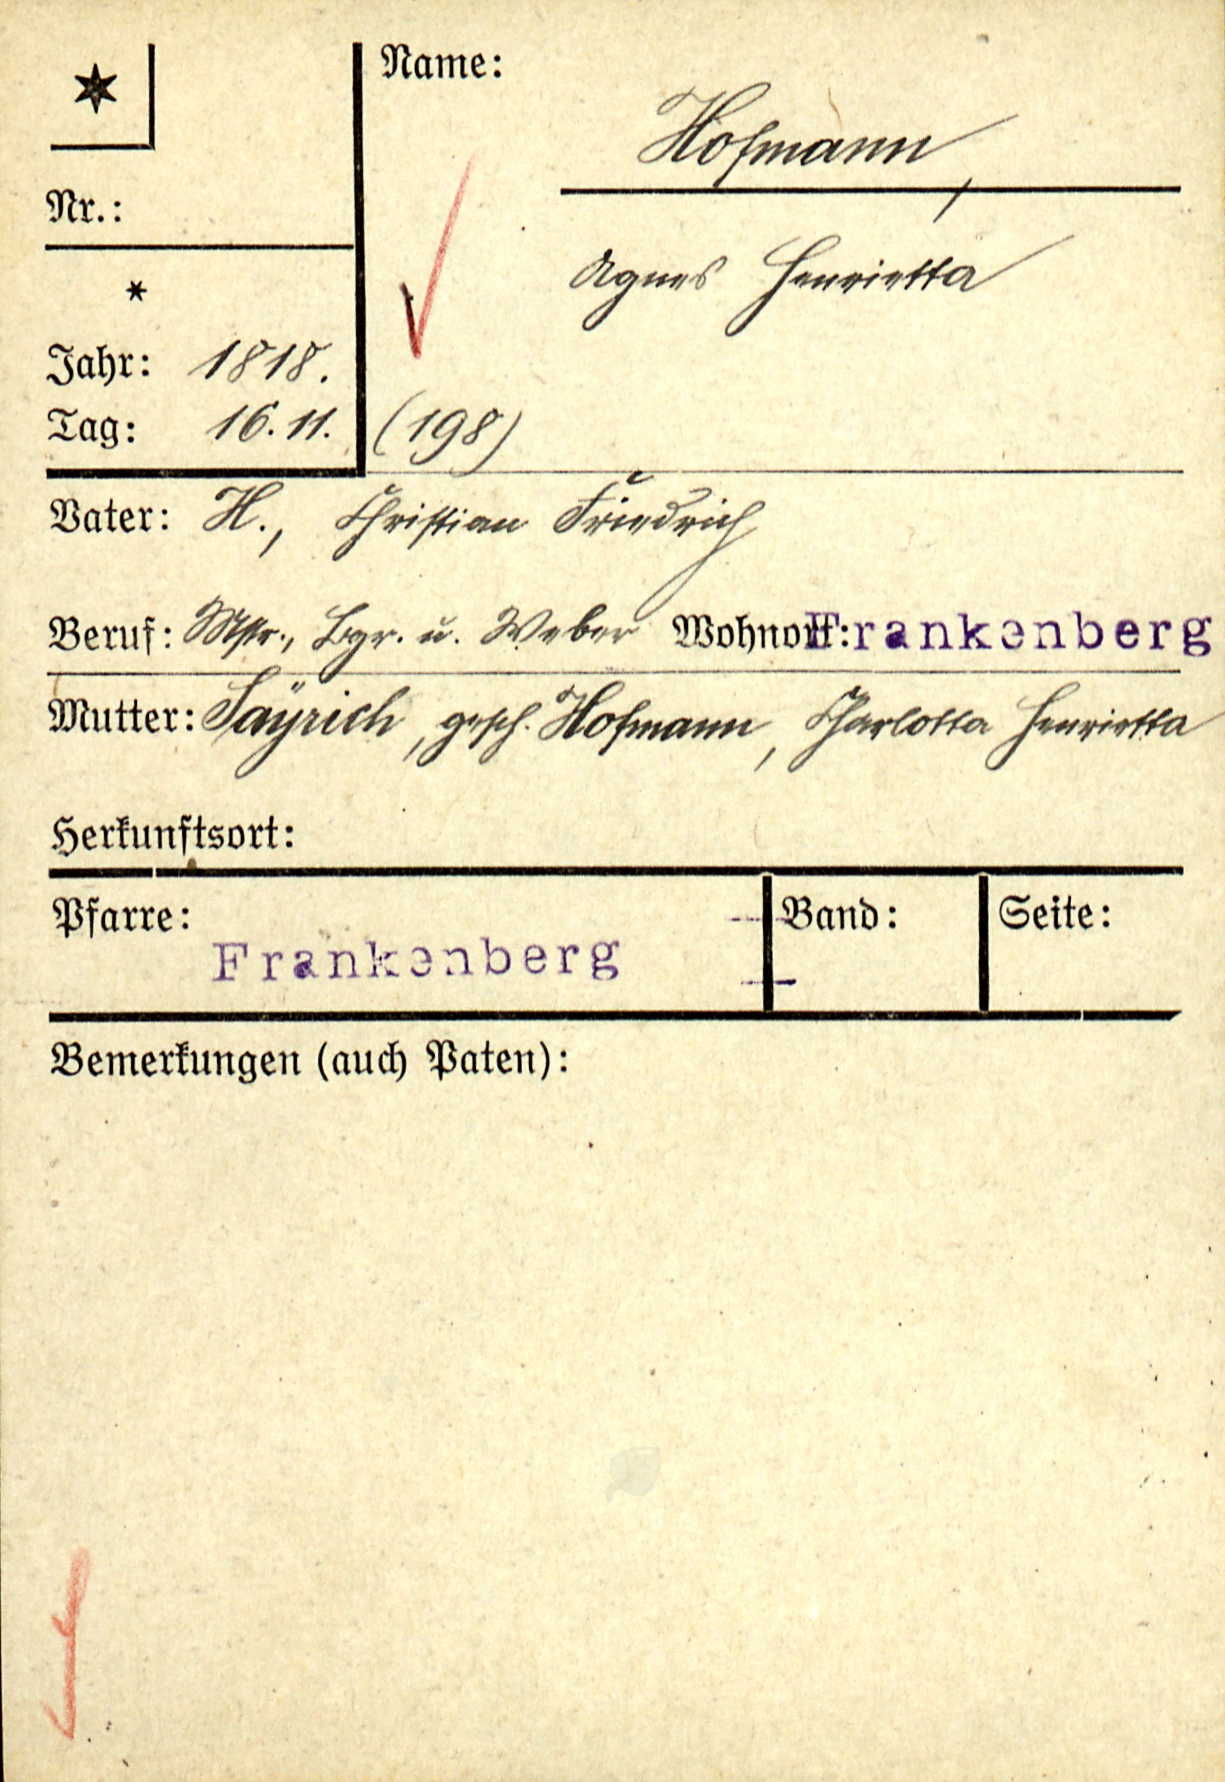 *
Name:
Hofmann,
Nr.:
Agnes Henriette
*
Jahr: 1818.
Tag: 16.11. (198)
Vater: H., Christian Friedrich
Beruf: Mstr., Bgr. u. Weber Wohnort: Frankenberg
Mutter: , gesch. Hofmann, Charlotte Henriette
Herkunftsort:
Pfarre: Band: Seite:
Frankenberg
Bemerkungen (auch Paten):